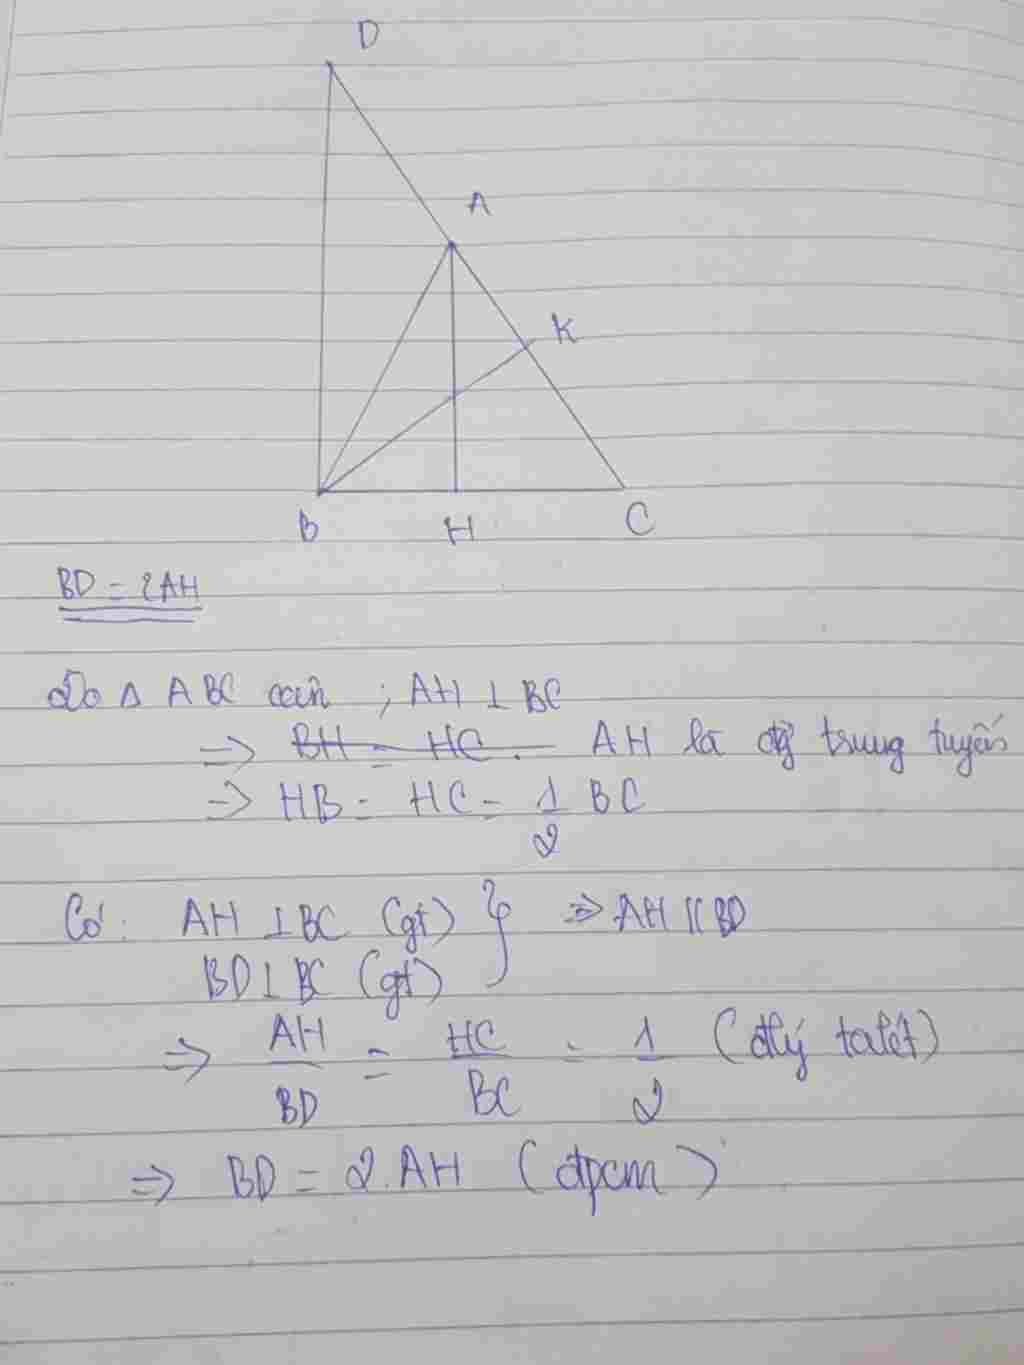 D
A
K
B H C
BD = 2AH
Do Δ ABC cân ; AH ⊥ BC
=> BH = HC . AH là đg trung tuyến
=> HB = HC = 1/2 BC
Có: AH ⊥ BC (gt) } => AH // BD
BD ⊥ BC (gt)
=> AH/BD = HC/BC = 1/2 (đlý talét)
=> BD = 2.AH (đpcm)